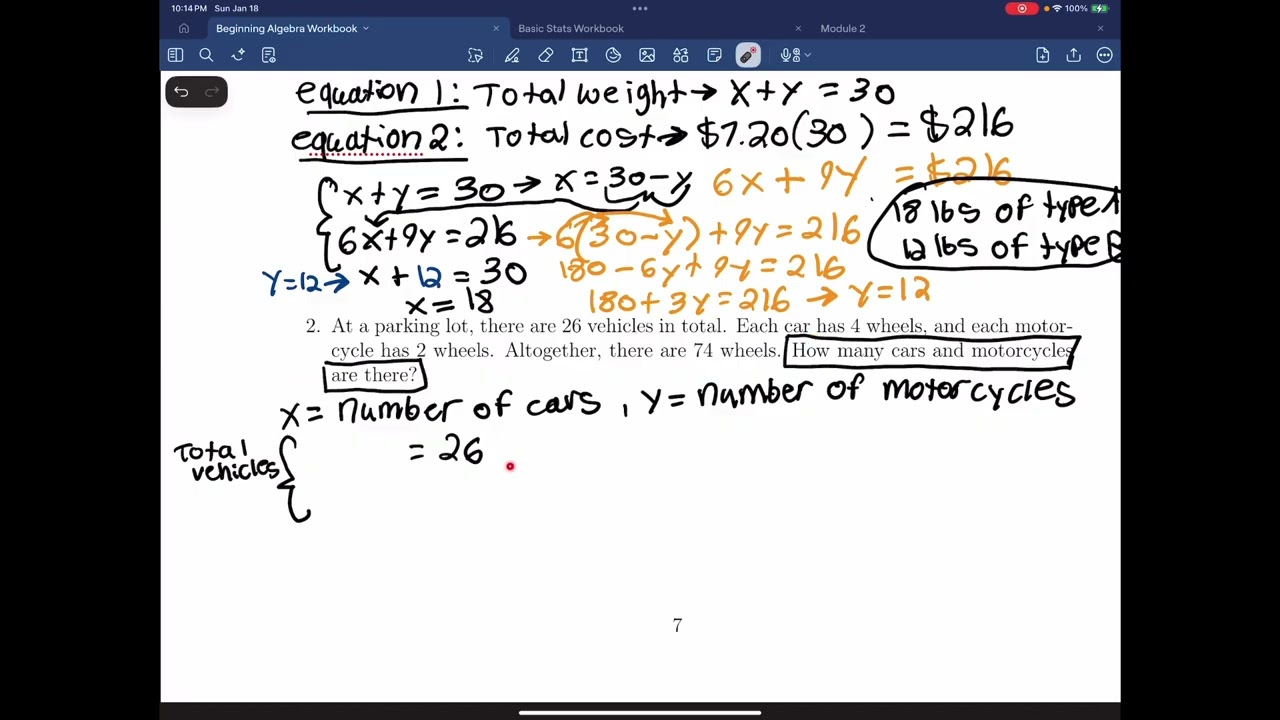 10:14 PM Sun Jan 18
100%
Beginning Algebra Workbook
Basic Stats Workbook
Module 2
equation 1: Total weight → x + y = 30
equation 2: Total cost → $7.20(30) = $216
6x + 9y = $216
{ x + y = 30 → x = 30 - y
6x + 9y = 216 → 6(30 - y) + 9y = 216
180 - 6y + 9y = 216
180 + 3y = 216 → y = 12
y = 12 → x + 12 = 30
x = 18
18 lbs of type
12 lbs of type
2. At a parking lot, there are 26 vehicles in total. Each car has 4 wheels, and each motor-
cycle has 2 wheels. Altogether, there are 74 wheels. How many cars and motorcycles
are there?
x = number of cars, y = number of motorcycles
Total vehicles { = 26
7